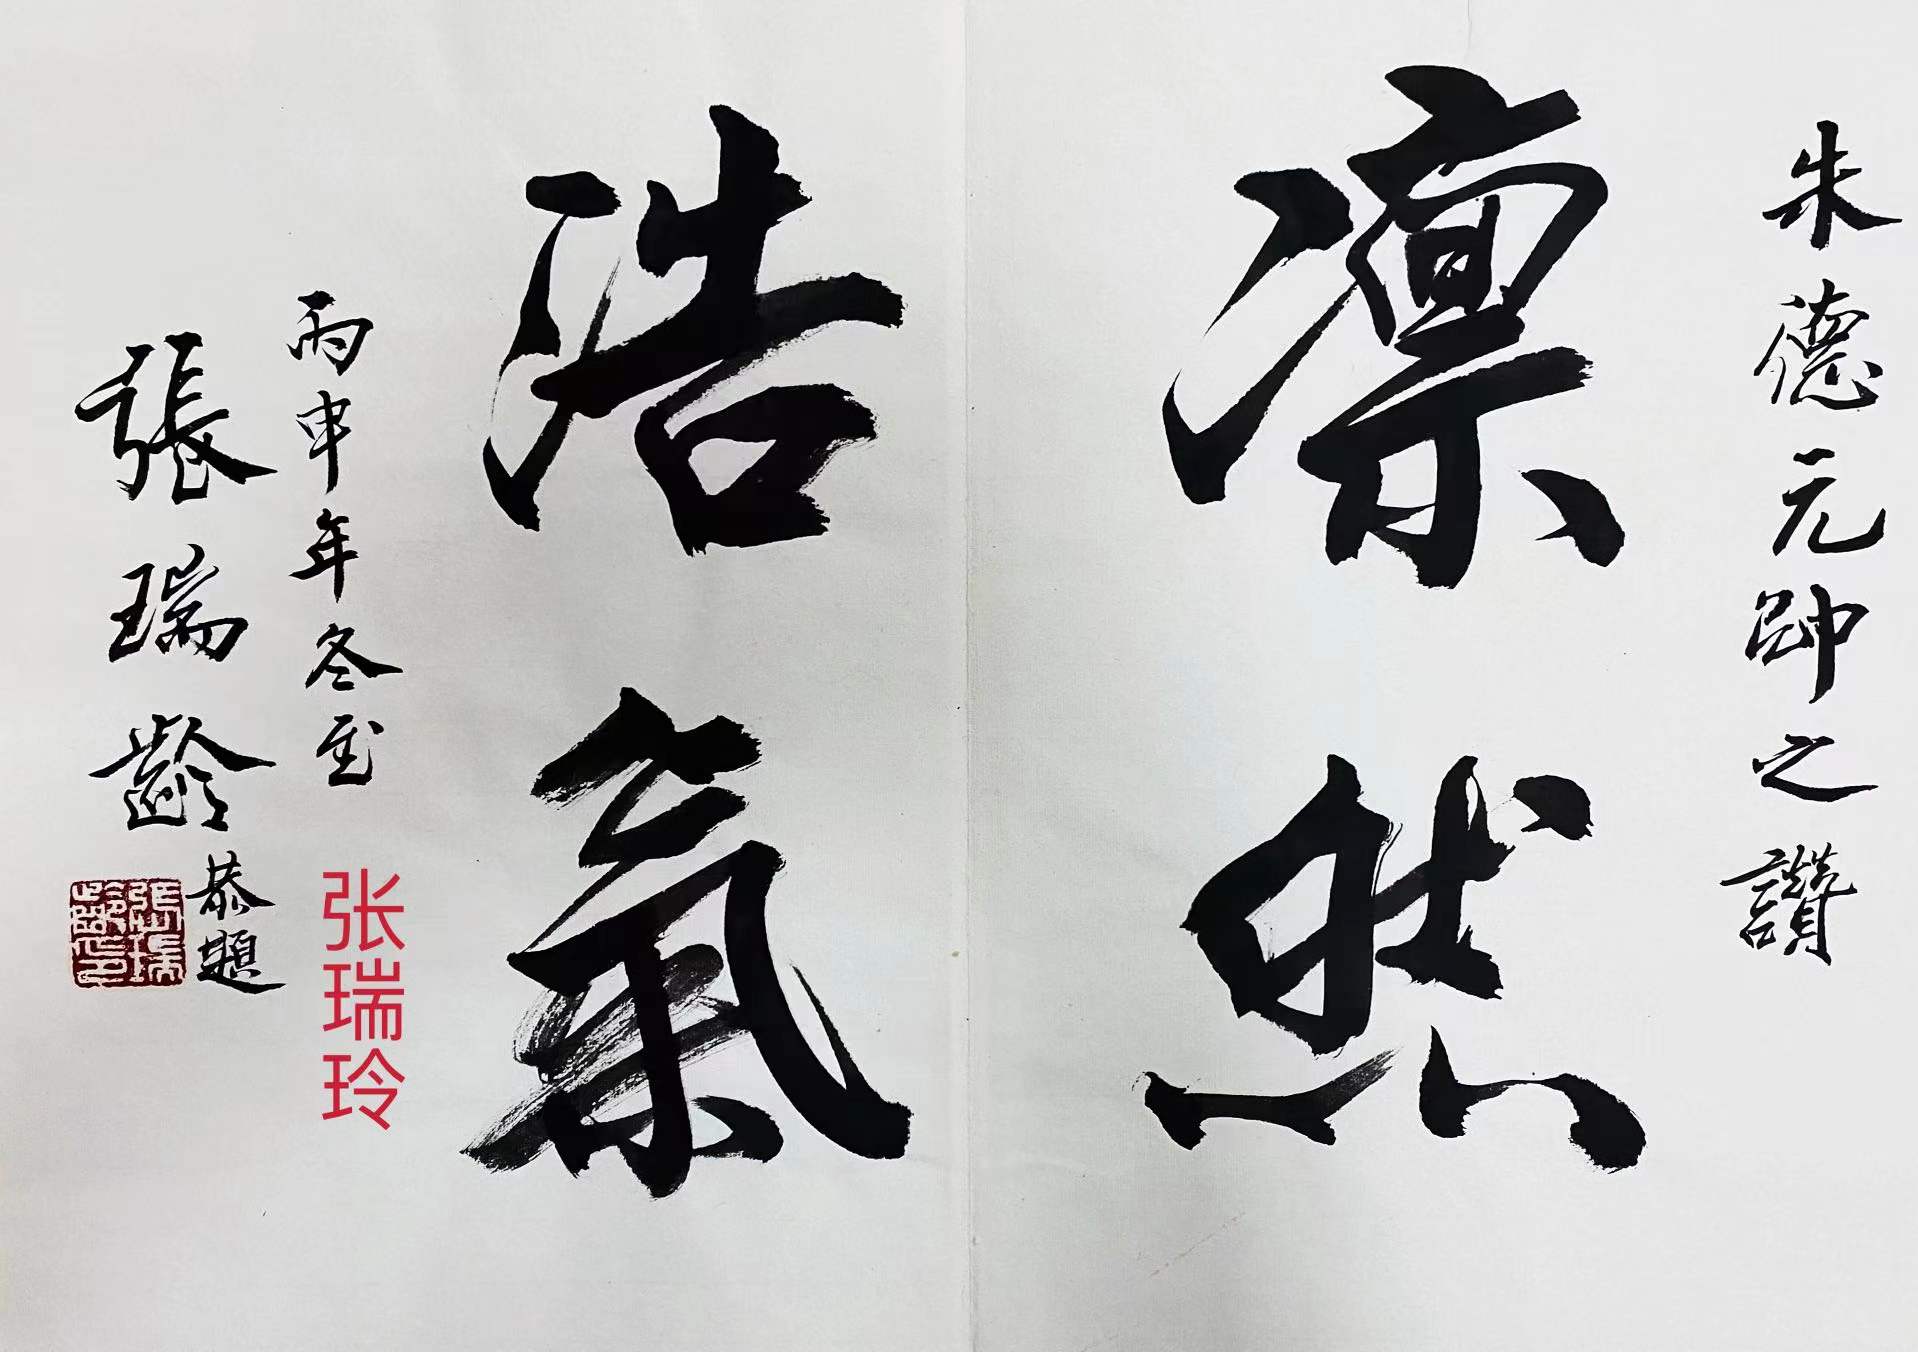 朱德元帥之讚
凛然
浩氣
丙申年冬至
張瑞齡恭題
張瑞齡印
张瑞玲